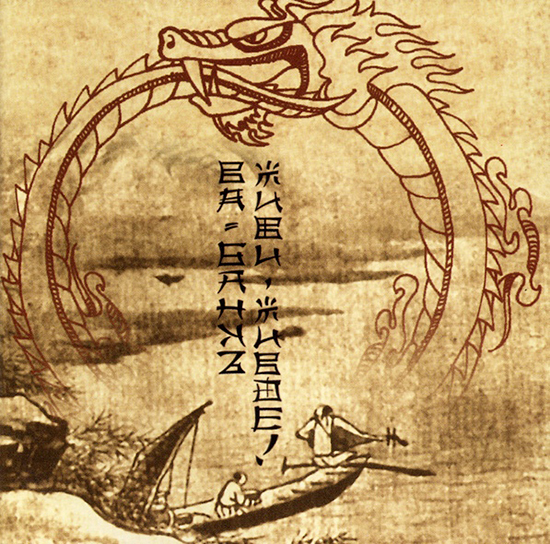 ВА-БАНКЪ
ЖИВИ, ЖИВОЕ!